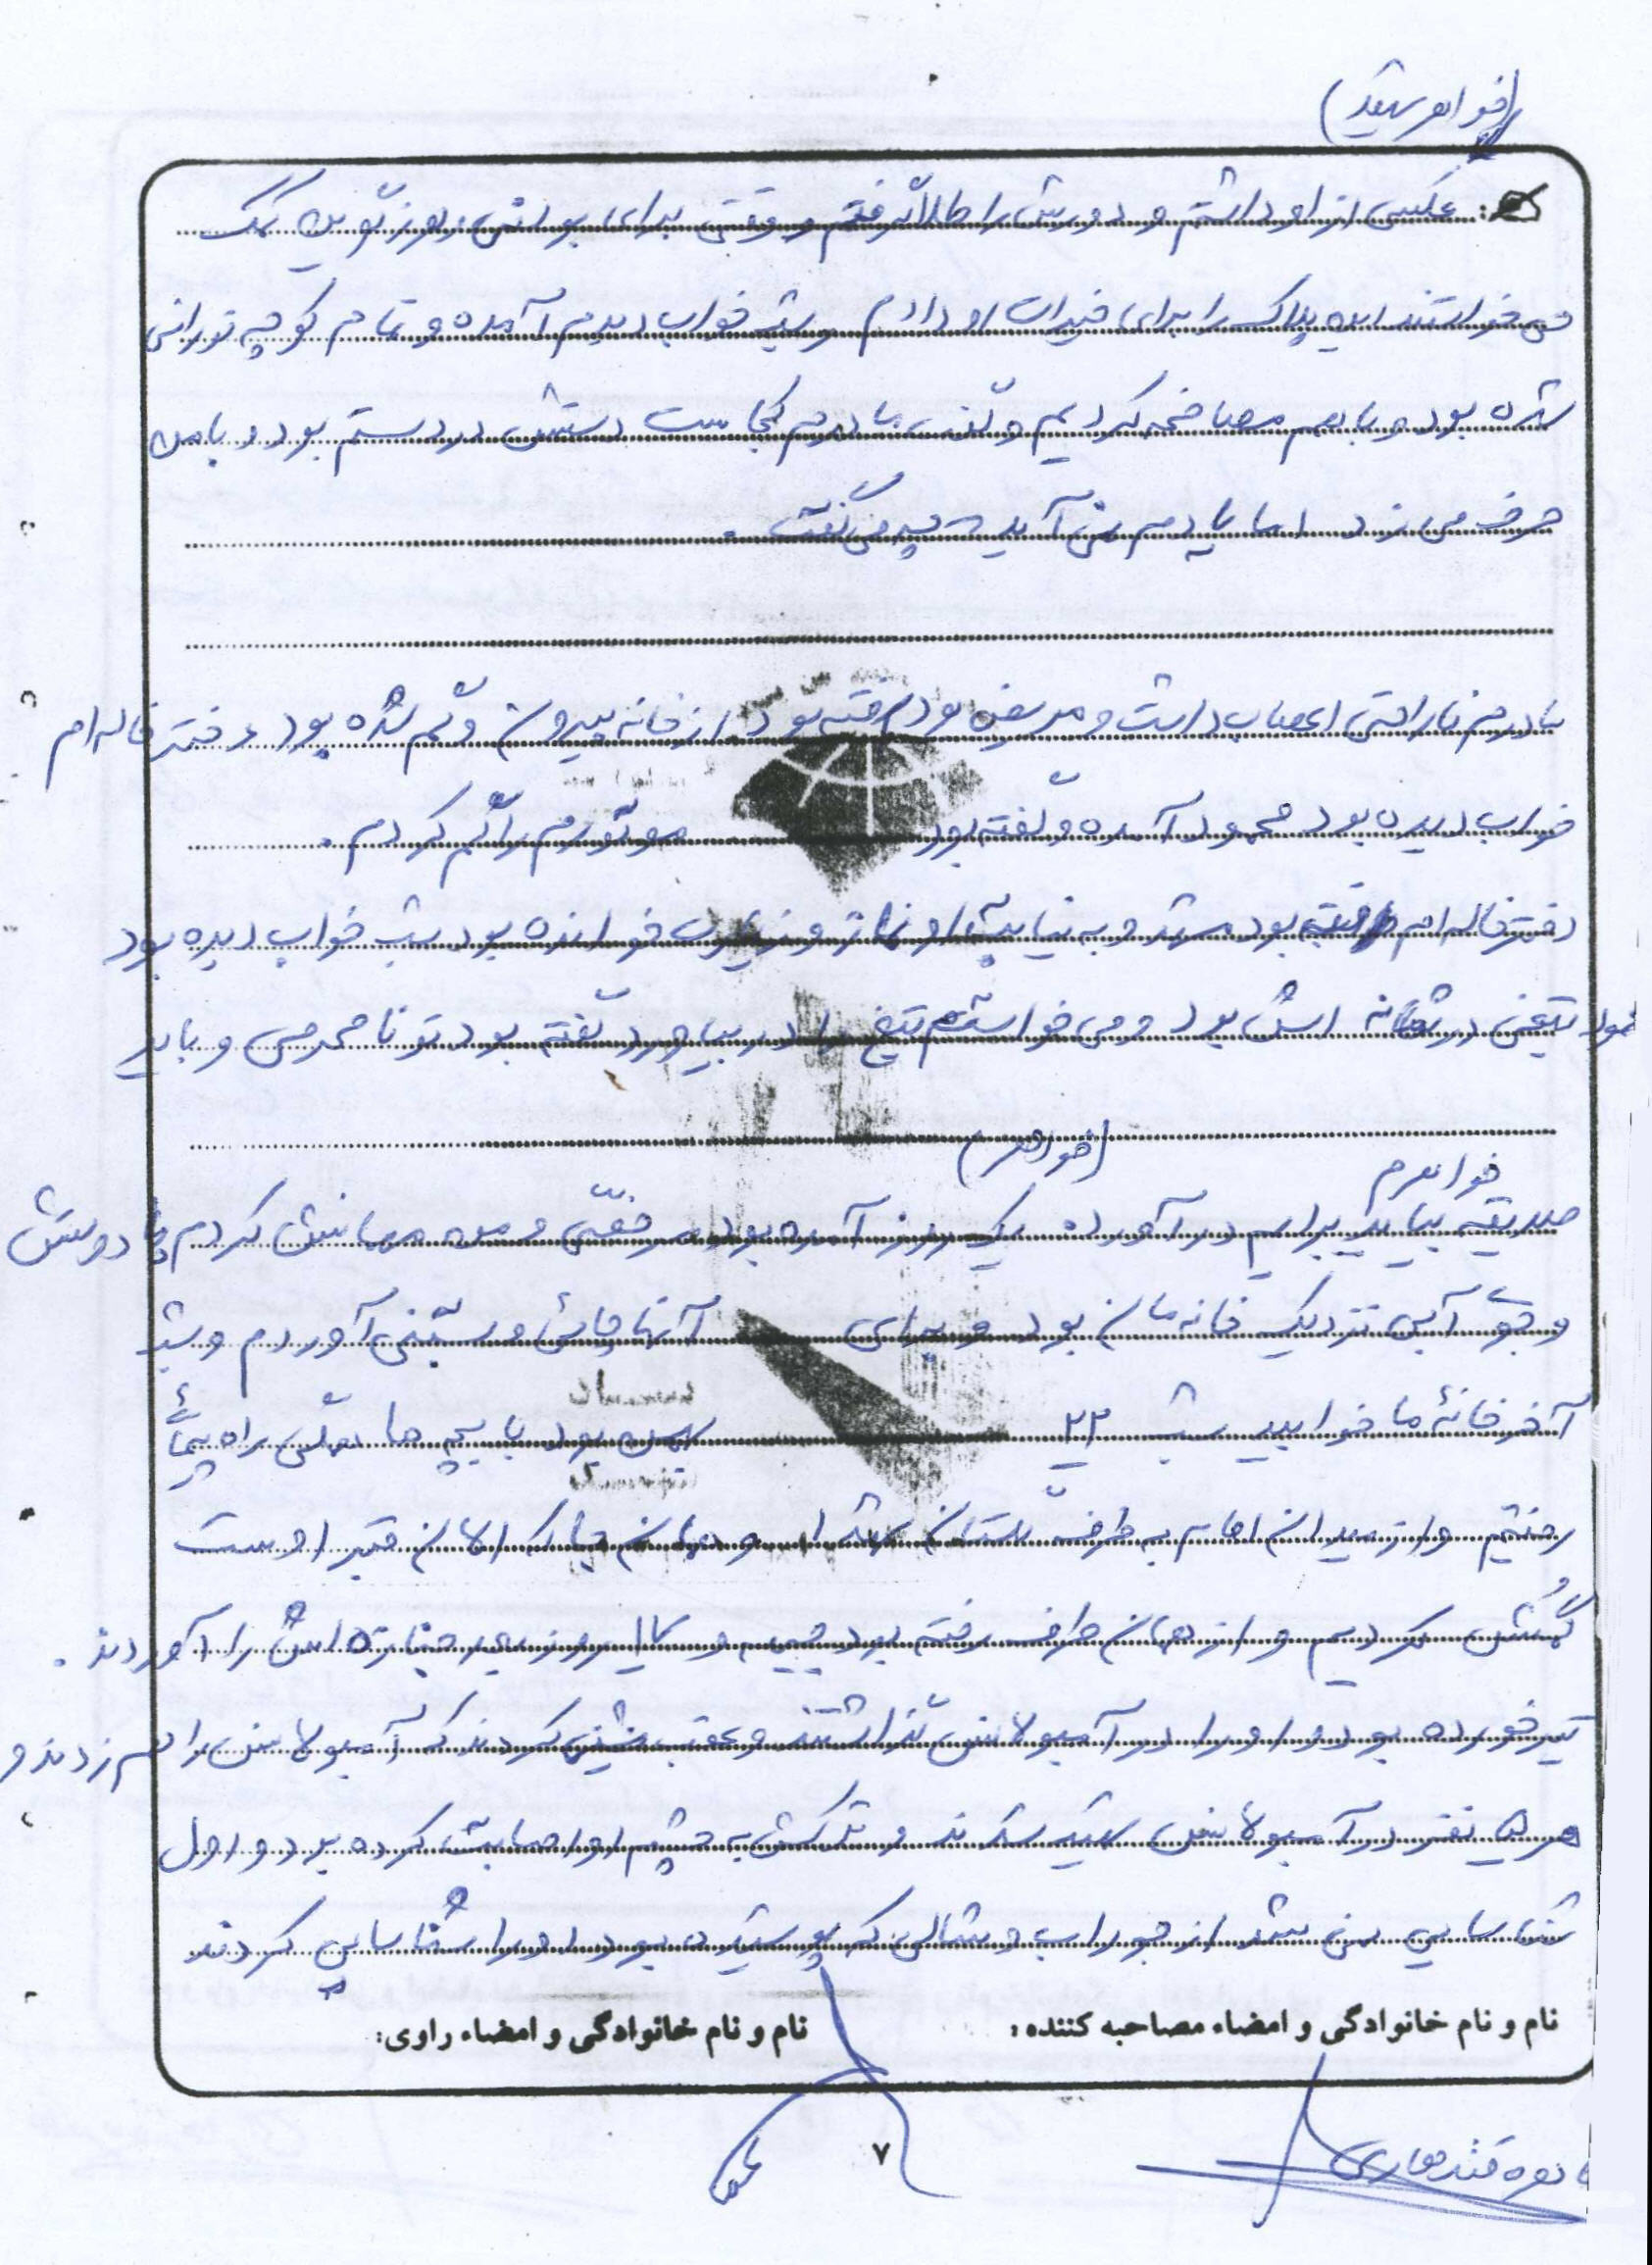 (خواهر شهید)
عکسی از او داشتم و دورش را طلا گرفتم و وقتی برای بوسنی هرزگوین کمک
می خواستند این پلاک را برای خیرات او دادم و شب خواب دیدم آمده و تمام کوچه نورانی
شده بود و با هم مصافحه کردیم و گفت مادرم کجاست دستش در دستم بود و با من
حرف می زد اما یادم نمی آید چه می گفت .
مادرم ناراحتی اعصاب داشت و مریض بود رفته بود از خانه بیرون و گم شده بود دختر خاله ام
خواب دیده بود محمود آمده و گفته بود موتورم را گم کردم .
دختر خاله ام رفته بود مشهد و به نیابت او نماز و زیارت خوانده بود شب خواب دیده بود
تیغی در شانه اش بود و می خواستم تیغ را در بیاورد گفته بود تو نامحرمی و باید
(خواهر)
خواهرم
صدیقه بیاید برایم در آورد. یک روز آمده بود مرخصی و من مهمانش کردم با دوستش
و جوی آبی نزدیک خانه مان بود و برای آنها چائی و شیرینی آوردم و شب
آخر خانۀ ما خوابید شب ۲۲ بهمن بود با بچه ها همگی راه پیمائی
رفتیم و از میدان امام به طرف گلستان شهدا و همان جا که الان قبر اوست
گمش کردیم و از همان طرف رفته بود جبهه و روز بعد جنازه اش را آوردند .
تیر خورده بود و او را در آمبولانس گذاشتند و عقب نشینی کردند که آمبولانس را هم زدند و
هر ۵ نفر در آمبولانس شهید شدند و ترکش به چشم او اصابت کرده بود و اول
شناسایی نمی شد از جوراب و شالی که پوشیده بود او را شناسایی کردند
نام و نام خانوادگی و امضاء مصاحبه کننده: نام و نام خانوادگی و امضاء راوی:
قندهاری
۷